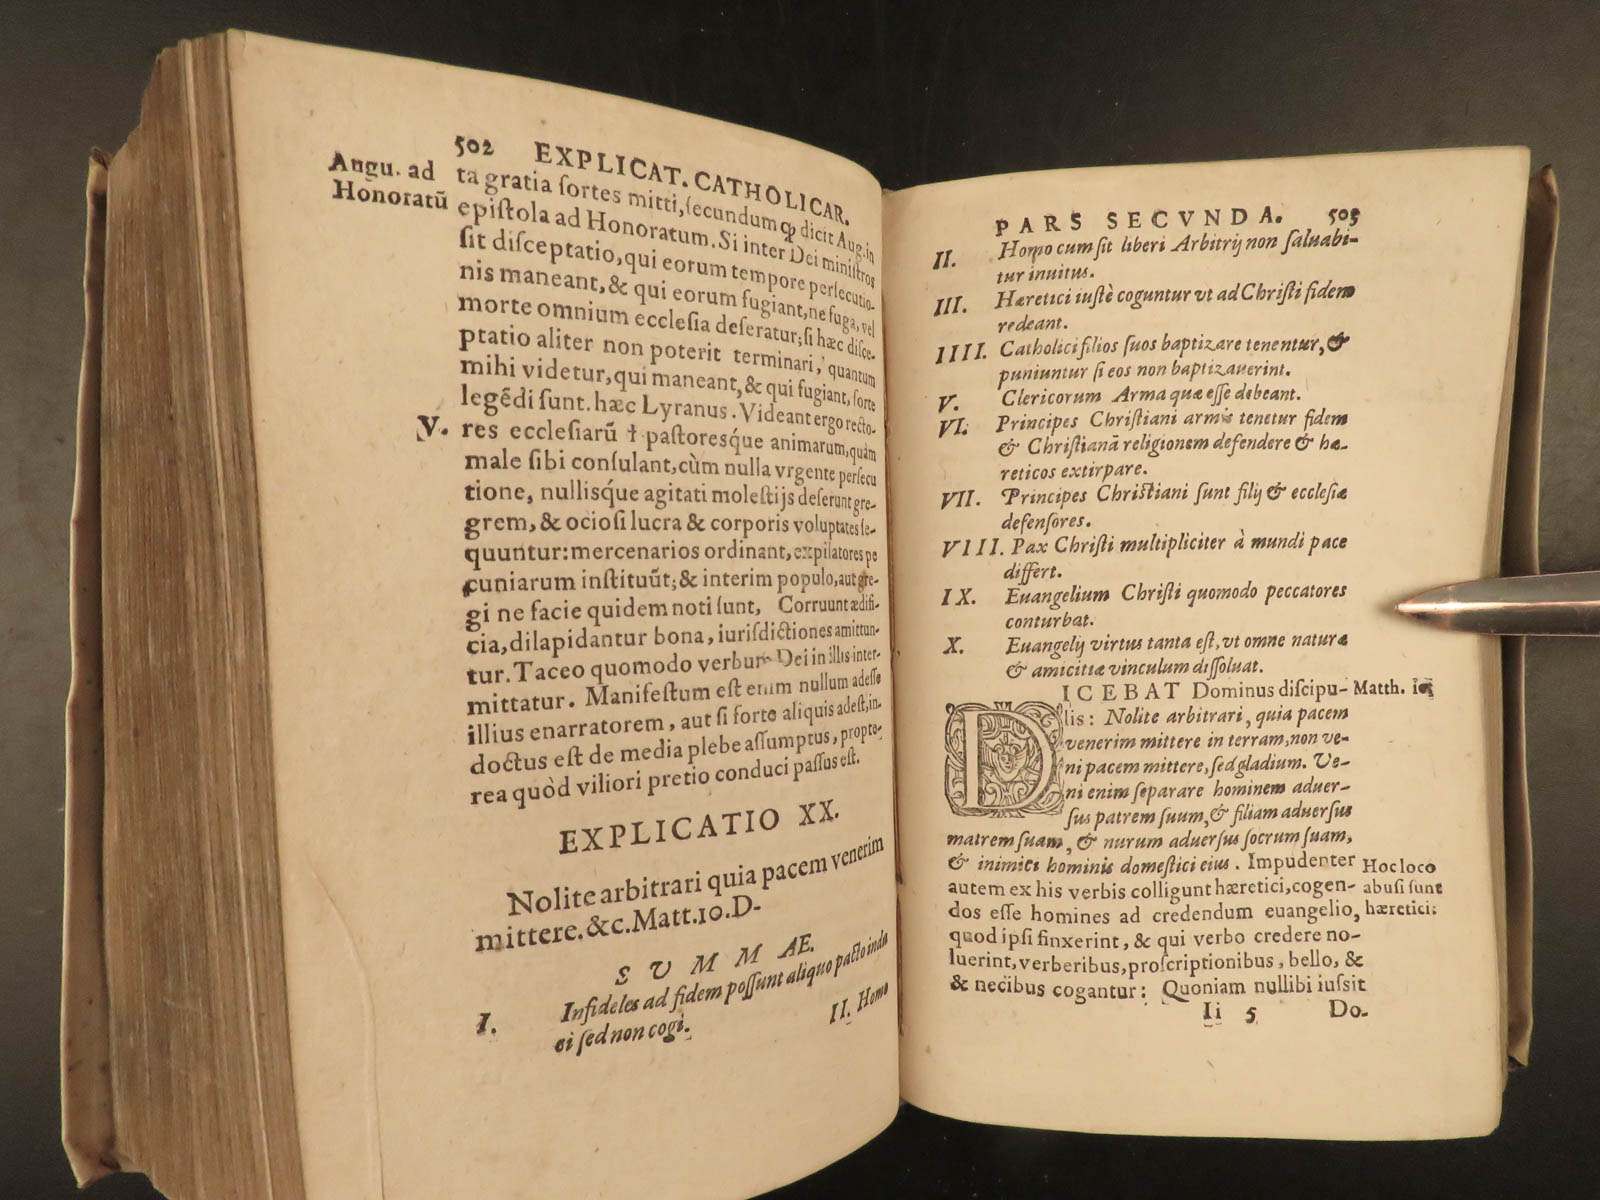 502 EXPLICAT. CATHOLICAR.
Augu. ad
Honoratū
ta gratia ſortes mitti, ſecundum qp dicit Aug. in
epiſtola ad Honoratum. Si inter Dei miniſtros
ſit diſceptatio, qui eorum tempore perſecutio-
nis maneant, & qui eorum fugiant, ne fuga, vel
morte omnium eccleſia deſeratur; ſi hæc diſce-
ptatio aliter non poterit terminari, quantum
mihi videtur, qui maneant, & qui fugiant, ſorte
legēdi ſunt. hæc Lyranus. Videant ergo recto-
V. res eccleſiarū † paſtoresq́ue animarum, quàm
male ſibi conſulant, cùm nulla vrgente perſecu
tione, nullisq́ue agitati moleſtijs deſerunt gre-
grem, & ocioſi lucra & corporis voluptates ſe-
quuntur: mercenarios ordinant, expilatores pe
cuniarum inſtituūt; & interim populo, aut gre-
gi ne facie quidem noti ſunt, Corruunt ædifi-
cia, dilapidantur bona, iuriſdictiones amittun-
tur. Taceo quomodo verbum Dei in illis inter-
mittatur. Manifeſtum eſt enim nullum adeſſe
illius enarratorem, aut ſi forte aliquis adeſt, in-
doctus eſt de media plebe aſſumptus, propte-
rea quòd viliori pretio conduci paſſus eſt.
EXPLICATIO XX.
Nolite arbitrari quia pacem venerim
mittere. &c. Matt. 10. D-
SVMMAE.
I. Infideles ad fidem poſſunt aliquo pacto indu
ci ſed non cogi.
II. Homo
PARS SECVNDA. 505
II. Homo cum ſit liberi Arbitrij non ſaluabi-
tur inuitus.
III. Hæretici iuſtè coguntur vt ad Chriſti fidem
redeant.
IIII. Catholici filios ſuos baptizare tenentur, &
puniuntur ſi eos non baptizauerint.
V. Clericorum Arma quæ eſſe debeant.
VI. Principes Chriſtiani armis tenetur fidem
& Chriſtianā religionem defendere & hæ-
reticos extirpare.
VII. Principes Chriſtiani ſunt filij & eccleſiæ
defenſores.
VIII. Pax Chriſti multipliciter à mundi pace
differt.
IX. Euangelium Chriſti quomodo peccatores
conturbat.
X. Euangelij virtus tanta eſt, vt omne naturæ
& amicitiæ vinculum diſſoluat.
DICEBAT Dominus diſcipu- Matth. 10
lis: Nolite arbitrari, quia pacem
venerim mittere in terram, non ve-
ni pacem mittere, ſed gladium. Ve-
ni enim ſeparare hominem aduer-
ſus patrem ſuum, & filiam aduerſus
matrem ſuam, & nurum aduerſus ſocrum ſuam,
& inimici hominis domeſtici eius. Impudenter
autem ex his verbis colligunt hæretici, cogen-
dos eſſe homines ad credendum euangelio,
quod ipſi finxerint, & qui verbo credere no-
luerint, verberibus, proſcriptionibus, bello, &
& necibus cogantur: Quoniam nullibi iuſsit
Hoc loco
abuſi ſunt
hæretici:
Ii 5 Do-